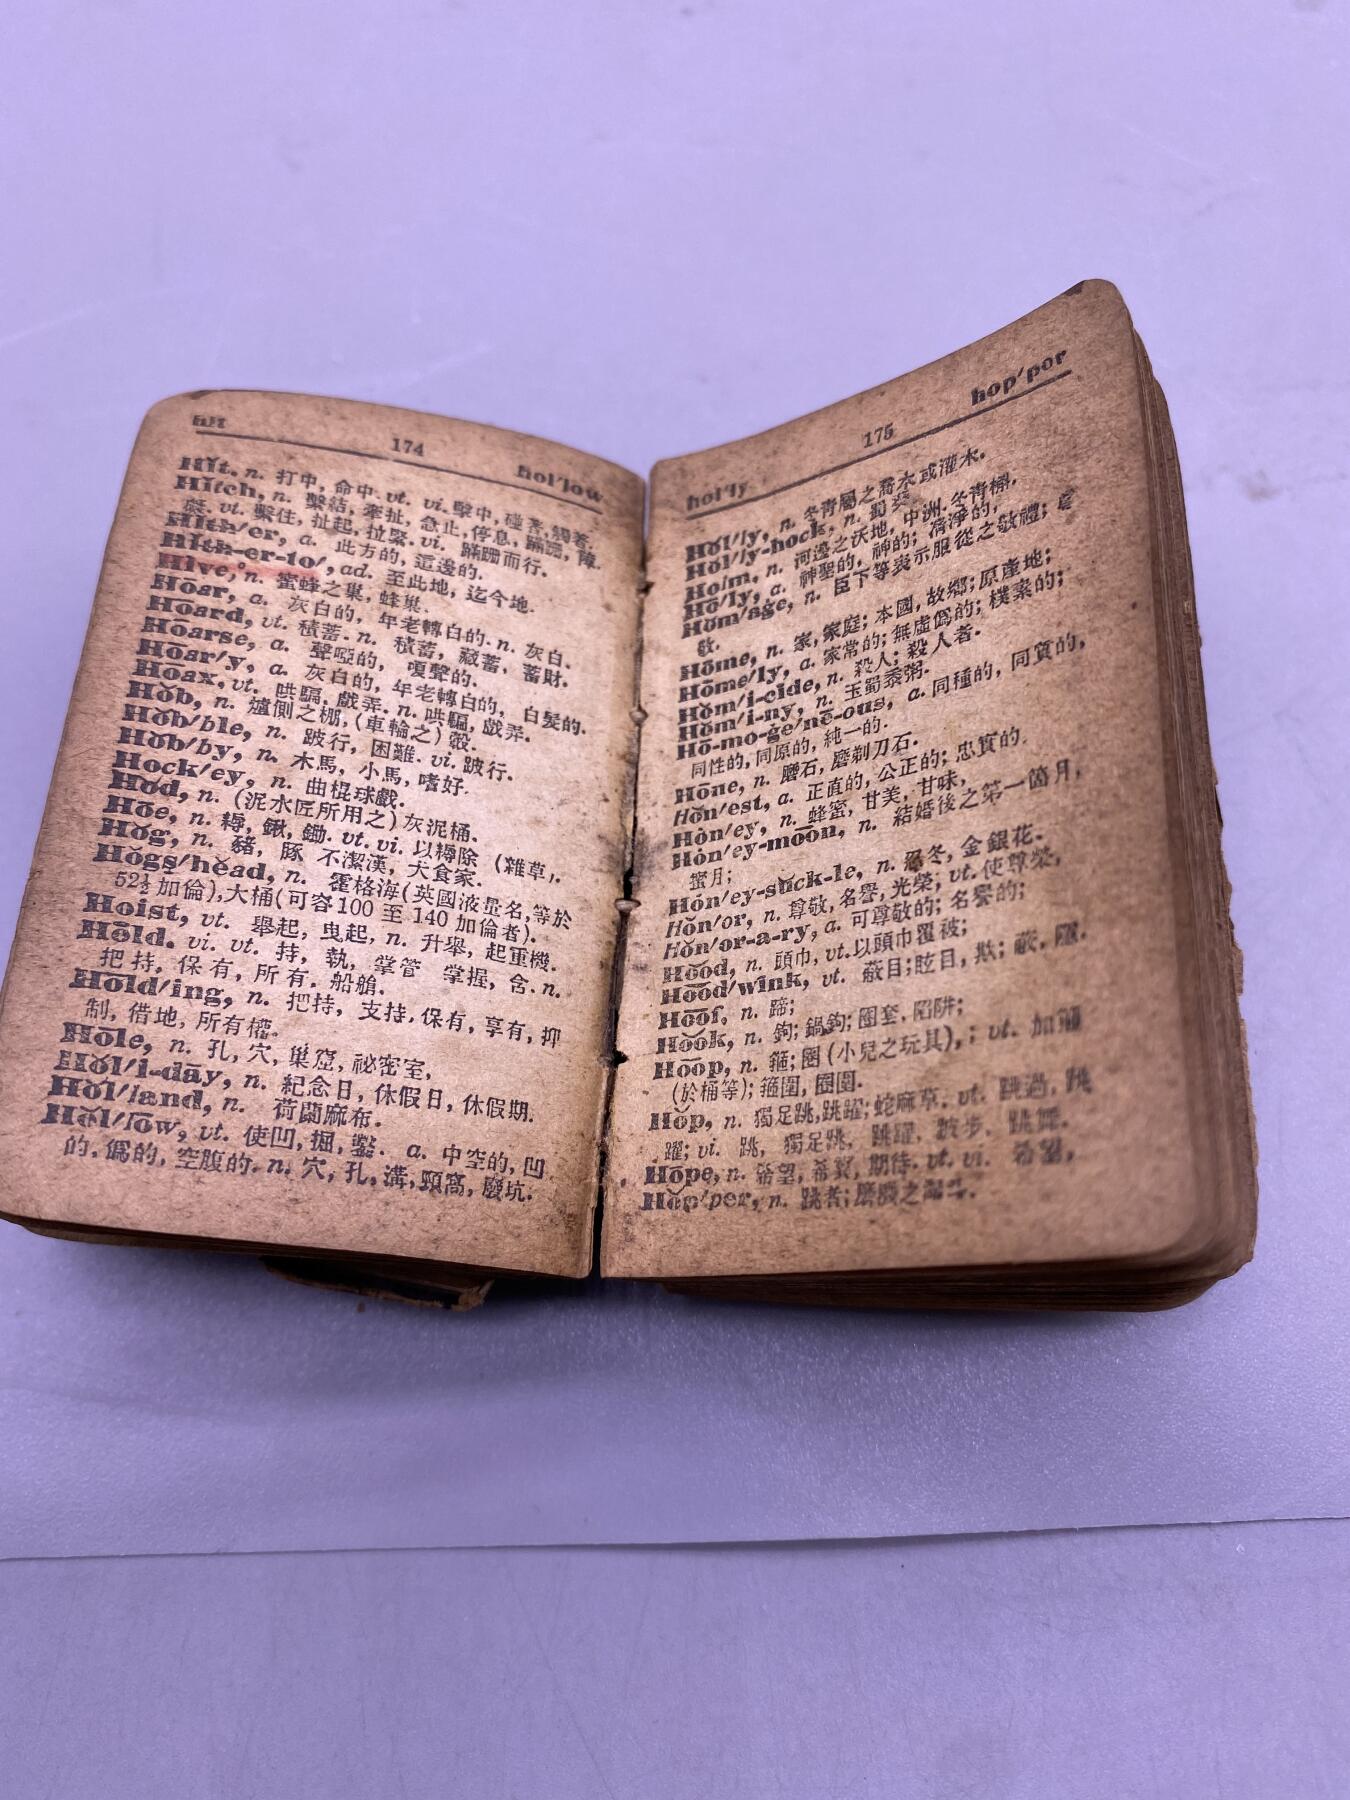 hit 174 hol'low
Hĭt. n. 打中, 命中. vt. vi. 擊中, 碰著, 觸著.
Hĭtch, n. 繫結, 牽扯, 急止, 停息, 蹣跚, 障
礙. vt. 繫住, 扯起, 拉緊. vi. 蹣跚而行.
Hĭth/er, a. 此方的, 這邊的.
Hĭth-er-to/, ad. 至此地, 迄今地.
Hīve, n. 蜜蜂之巢, 蜂巢.
Hōar, a. 灰白的, 年老轉白的. n. 灰白.
Hōard, vt. 積蓄. n. 積蓄, 藏蓄, 蓄財.
Hōarse, a. 聲啞的, 嗄聲的.
Hōar/y, a. 灰白的, 年老轉白的, 白髮的.
Hōax, vt. 哄騙, 戲弄. n. 哄騙, 戲弄.
Hŏb, n. 爐側之棚, (車輪之) 轂.
Hŏb/ble, n. 跛行, 困難. vi. 跛行.
Hŏb/by, n. 木馬, 小馬, 嗜好.
Hock/ey, n. 曲棍球戲.
Hŏd, n. (泥水匠所用之) 灰泥桶.
Hōe, n. 耨, 鍬, 鋤. vt. vi. 以耨除 (雜草).
Hŏg, n. 豬, 豚 不潔漢, 大食家.
Hŏgs/hĕad, n. 霍格海(英國液量名, 等於
52½ 加倫), 大桶(可容100 至 140 加倫者).
Hoist, vt. 舉起, 曳起, n. 升舉, 起重機.
Hōld. vi. vt. 持, 執, 掌管 掌握, 含. n.
把持, 保有, 所有. 船艙.
Hōld/ing, n. 把持, 支持, 保有, 享有, 抑
制, 借地, 所有權.
Hōle, n. 孔, 穴, 巢窟, 祕密室,
Hŏl/i-dāy, n. 紀念日, 休假日, 休假期.
Hŏl/land, n. 荷蘭麻布.
Hŏl/lōw, vt. 使凹, 掘, 鑿. a. 中空的, 凹
的, 僞的, 空腹的. n. 穴, 孔, 溝, 頸窩, 廢坑.
hol'ly 175 hop'per
Hŏl/ly, n. 冬青屬之喬木或灌木.
Hŏl/ly-hock, n. 蜀葵
Holm, n. 河邊之沃地, 中洲. 冬青櫟.
Hō/ly, a. 神聖的, 神的; 清淨的,
Hŏm/age, n. 臣下等表示服從之敬禮;
敬.
Hōme, n. 家, 家庭; 本國, 故鄉; 原產地;
Hōme/ly, a. 家常的; 無虛僞的; 樸素的;
Hŏm/i-cīde, n. 殺人; 殺人者.
Hŏm/i-ny, n. 玉蜀黍粥.
Hō-mo-ge/nē-ous, a. 同種的, 同質的,
同性的, 同原的, 純一的.
Hōne, n. 磨石, 磨剃刀石.
Hŏn/est, a. 正直的, 公正的; 忠實的.
Hòn/ey, n. 蜂蜜, 甘美, 甘味,
Hòn/ey-mōōn, n. 結婚後之第一箇月,
蜜月;
Hòn/ey-sŭck-le, n. 忍冬, 金銀花.
Hŏn/or, n. 尊敬, 名譽, 光榮; vt. 使尊榮,
Hŏn/or-a-ry, a. 可尊敬的; 名譽的;
Hŏŏd, n. 頭巾, vt. 以頭巾覆被;
Hŏŏd/wĭnk, vt. 蔽目; 眩目, 欺; 蔽, 隱.
Hōōf, n. 蹄;
Hŏŏk, n. 鉤; 鍋鉤; 圈套, 陷阱;
Hōōp, n. 箍; 圈 (小兒之玩具), ; vt. 加箍
(於桶等); 箍圍, 圈圍.
Hŏp, n. 獨足跳, 跳躍; 蛇麻草. vt. 跳過, 跳
躍; vi. 跳, 獨足跳, 跳躍, 跛步, 跳舞.
Hōpe, n. 希望, 期待. vt. vi. 希望,
Hŏp'per, n. 跳者;